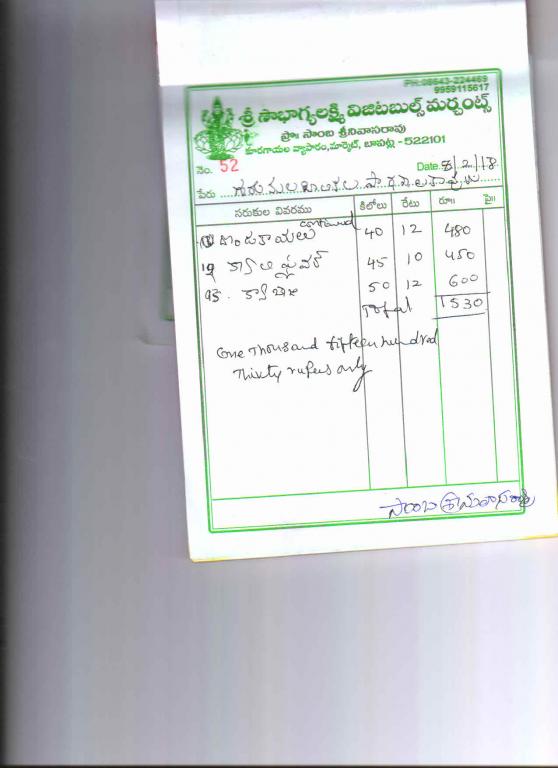 PH:08643-224469
9959115617
శ్రీ సౌభాగ్యలక్ష్మి విజిటబుల్స్ మర్చంట్స్
ప్రొః సాంబ శ్రీనివాసరావు
కూరగాయల వ్యాపారం,మార్కెట్, బాపట్ల - 522101
నెం. 52 Date 8/2/18
పేరు
సరుకుల వివరము కిలోలు రేటు రూ॥ పై॥
continued
దొండకాయలు 40 12 480
కాలీఫ్లవర్ 45 10 450
క్యాబేజి 50 12 600
Total 1530
One Thousand fifteen hundred
Thirty rupees only